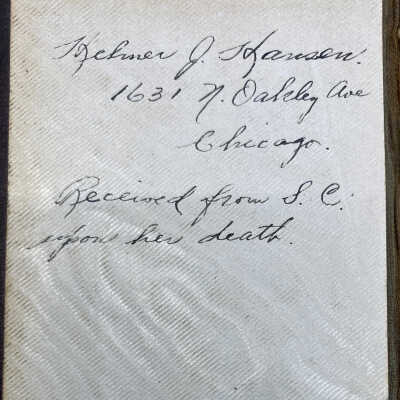 Helmer J. Hansen.
1631 N. Oakley Ave
Chicago.
Received from S. C.
upon her death.